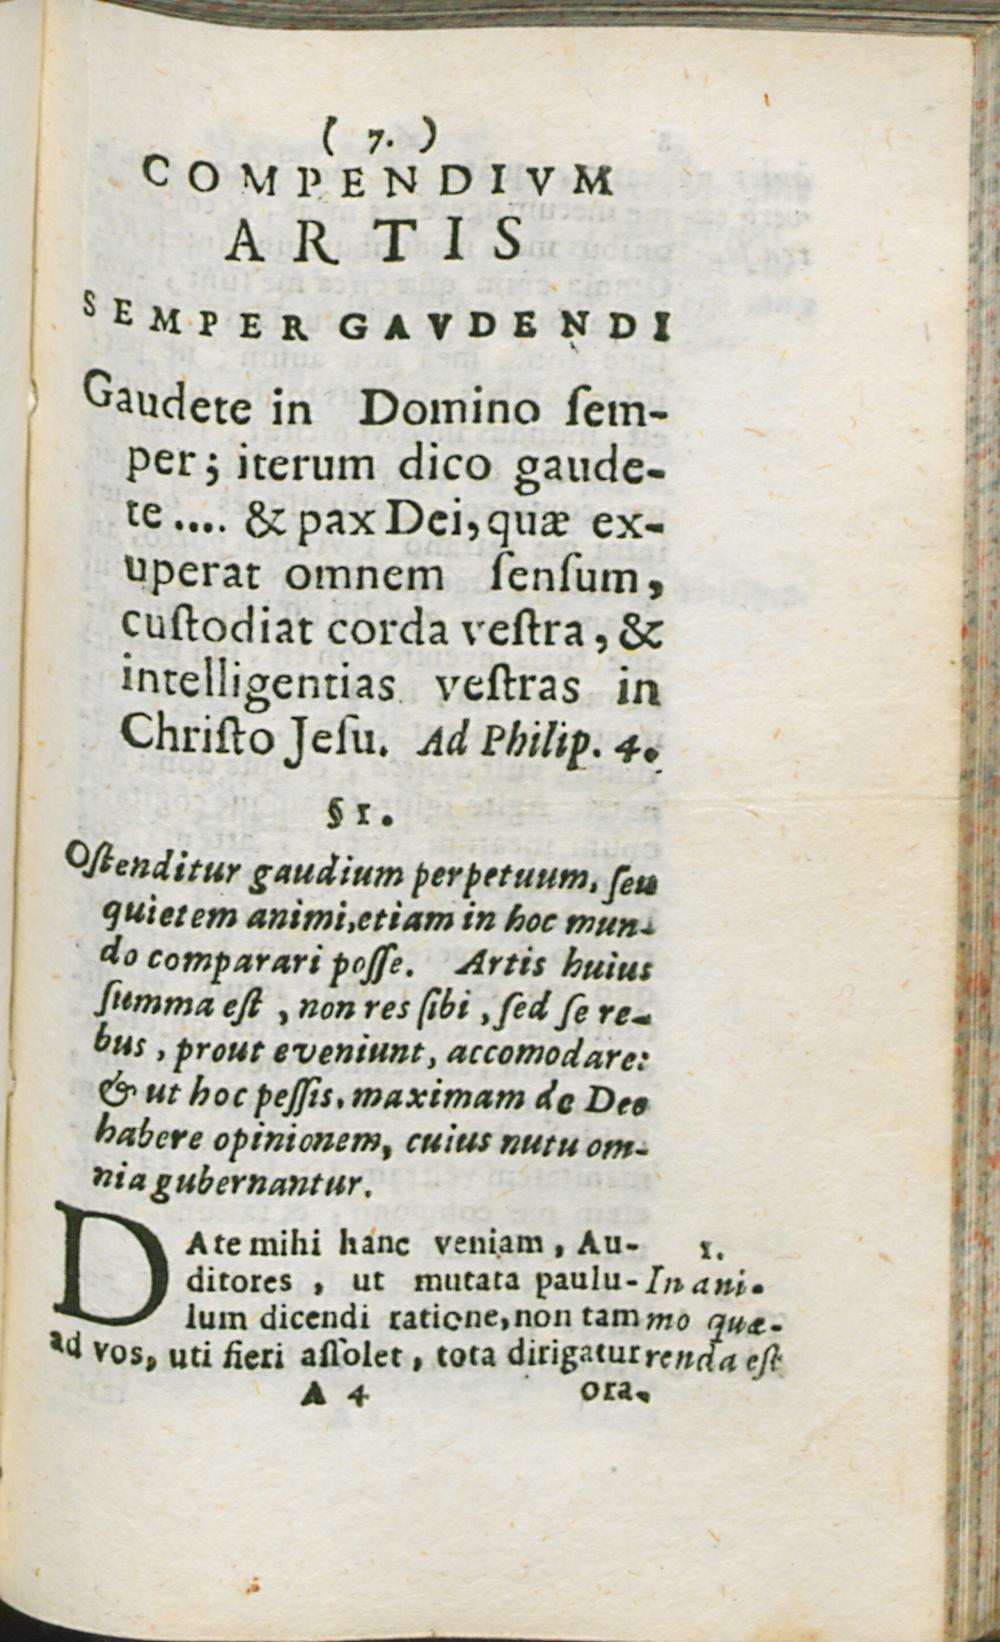 ( 7. )
COMPENDIVM
ARTIS
SEMPER GAVDENDI
Gaudete in Domino ſem-
per; iterum dico gaude-
te .... & pax Dei, quæ ex-
uperat omnem ſenſum,
cuſtodiat corda veſtra, &
intelligentias veſtras in
Chriſto Jeſu. Ad Philip. 4.
§ 1.
Oſtenditur gaudium perpetuum, ſeu
quietem animi, etiam in hoc mun-
do comparari poſſe. Artis huius
ſumma eſt, non res ſibi, ſed ſe re-
bus, prout eveniunt, accomodare:
& ut hoc peſſis, maximam de Deo
habere opinionem, cuius nutu om-
nia gubernantur.
DAte mihi hanc veniam, Au-
ditores, ut mutata paulu-
lum dicendi ratione, non tam
ad vos, uti fieri aſſolet, tota dirigatur
1.
In ani-
mo quæ-
renda eſt
A 4 ora-